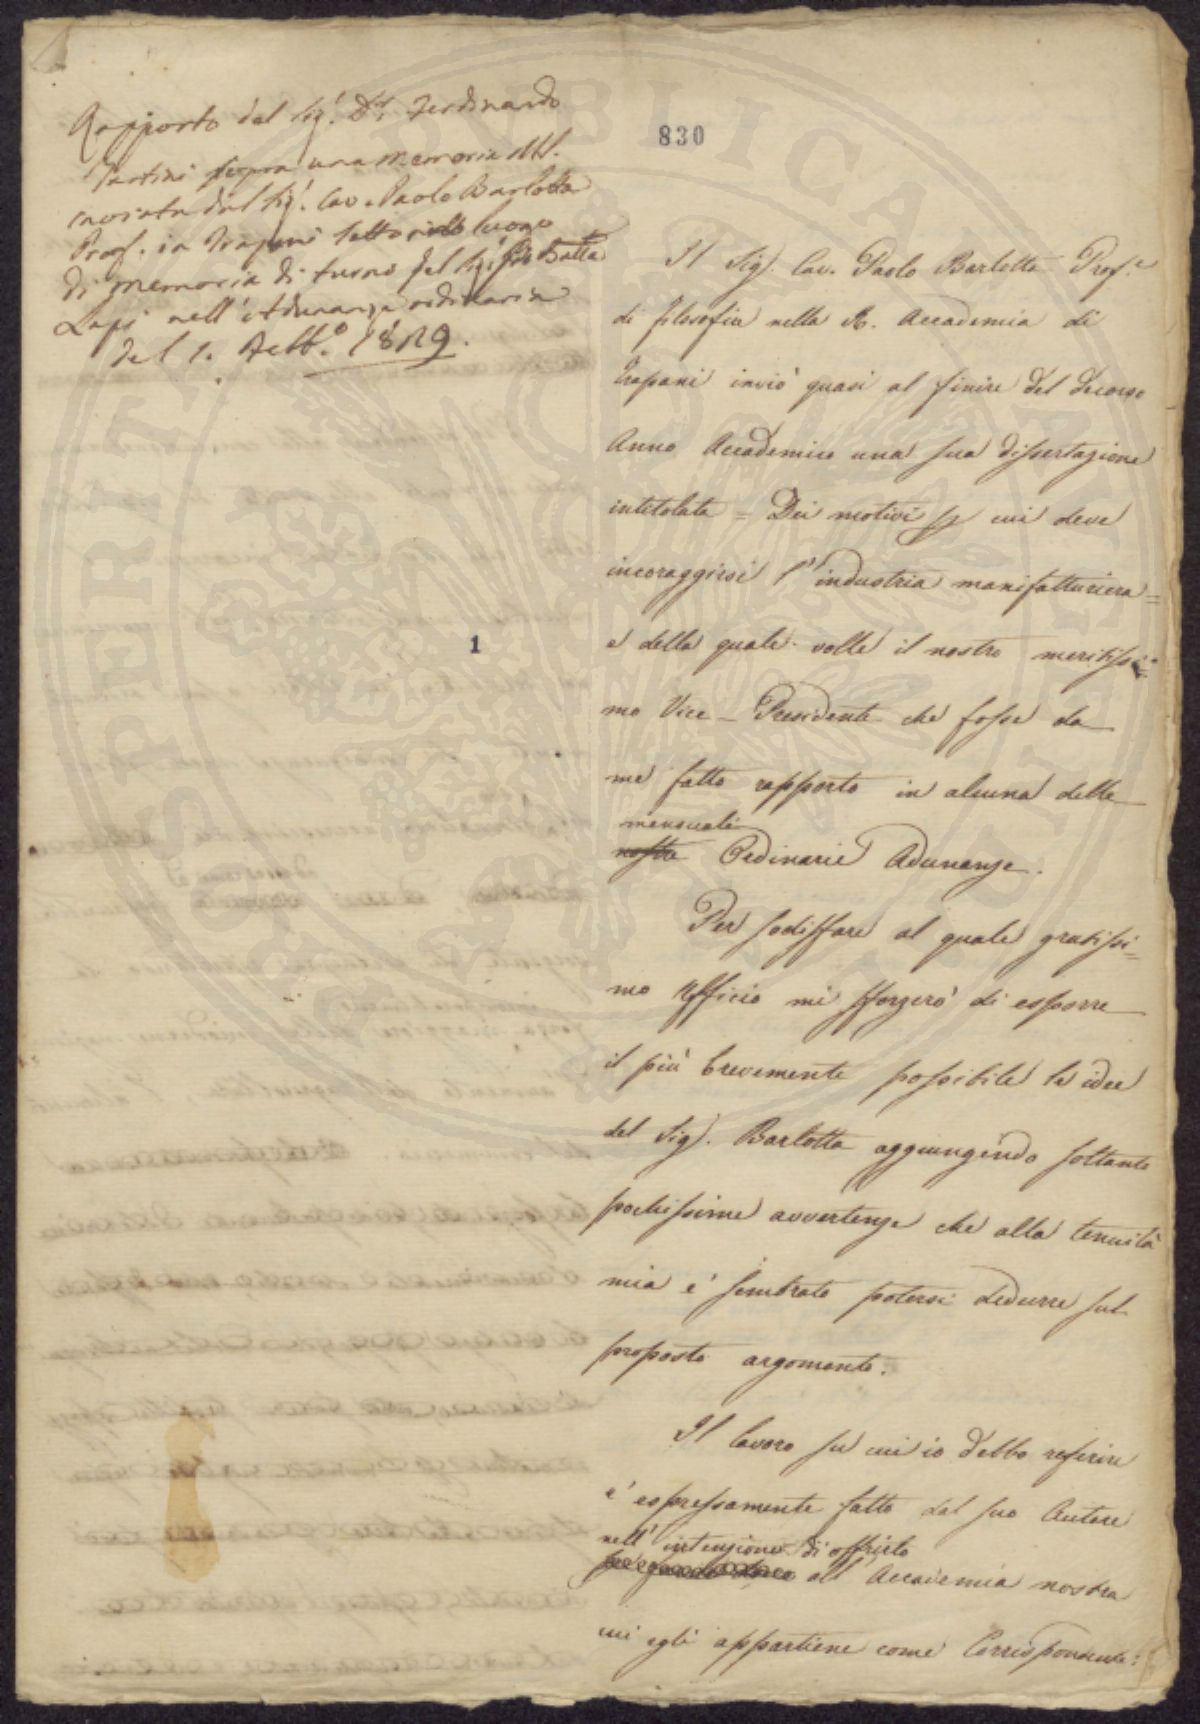 Rapporto del Sig.r D.r Ferdinando
Tartini sopra una memoria MS.
inviata dal Sig.r Cav. Paolo Barlotta
Prof. in Trapani letto in luogo
di memoria di turno del Sig.r Gio Batta
Lapi nell'Adunanza ordinaria
del 1. Febb.o 1829.
830
1
Il Sig.r Cav. Paolo Barlotta Prof.e
di filosofia nella R. Accademia di
Trapani inviò quasi al finire del decorso
Anno Accademico una sua dissertazione
intitolata = Dei motivi p cui deve
incoraggirsi l'industria manifatturiera =
e della quale volle il nostro meritissi=
mo Vice-Presidente che fosse da
me fatto rapporto in alcuna delle
mensuali
nostre Ordinarie Adunanze.
Per sodisfare al quale gratissi=
mo Ufficio mi sforzerò di esporre
il più brevemente possibile le idee
del Sig.r Barlotta aggiungendo soltanto
pochissime avvertenze che alla tenuità
mia è sembrato potersi dedurre sul
proposto argomento.
Il lavoro su cui io debbo referire
è espressamente fatto dal suo Autore
nell'intenzione di offrirlo
all'Accademia nostra
cui egli appartiene come Corrispondente: